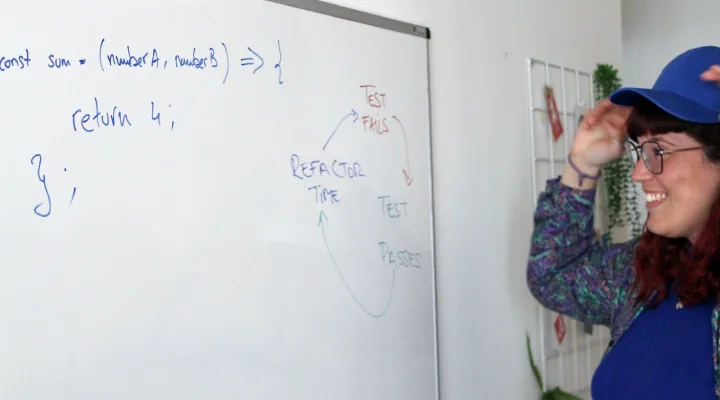 const sum = (numberA, numberB) => {
return 4;
};
TEST
FAILS
TEST
PASSES
REFACTOR
TIME